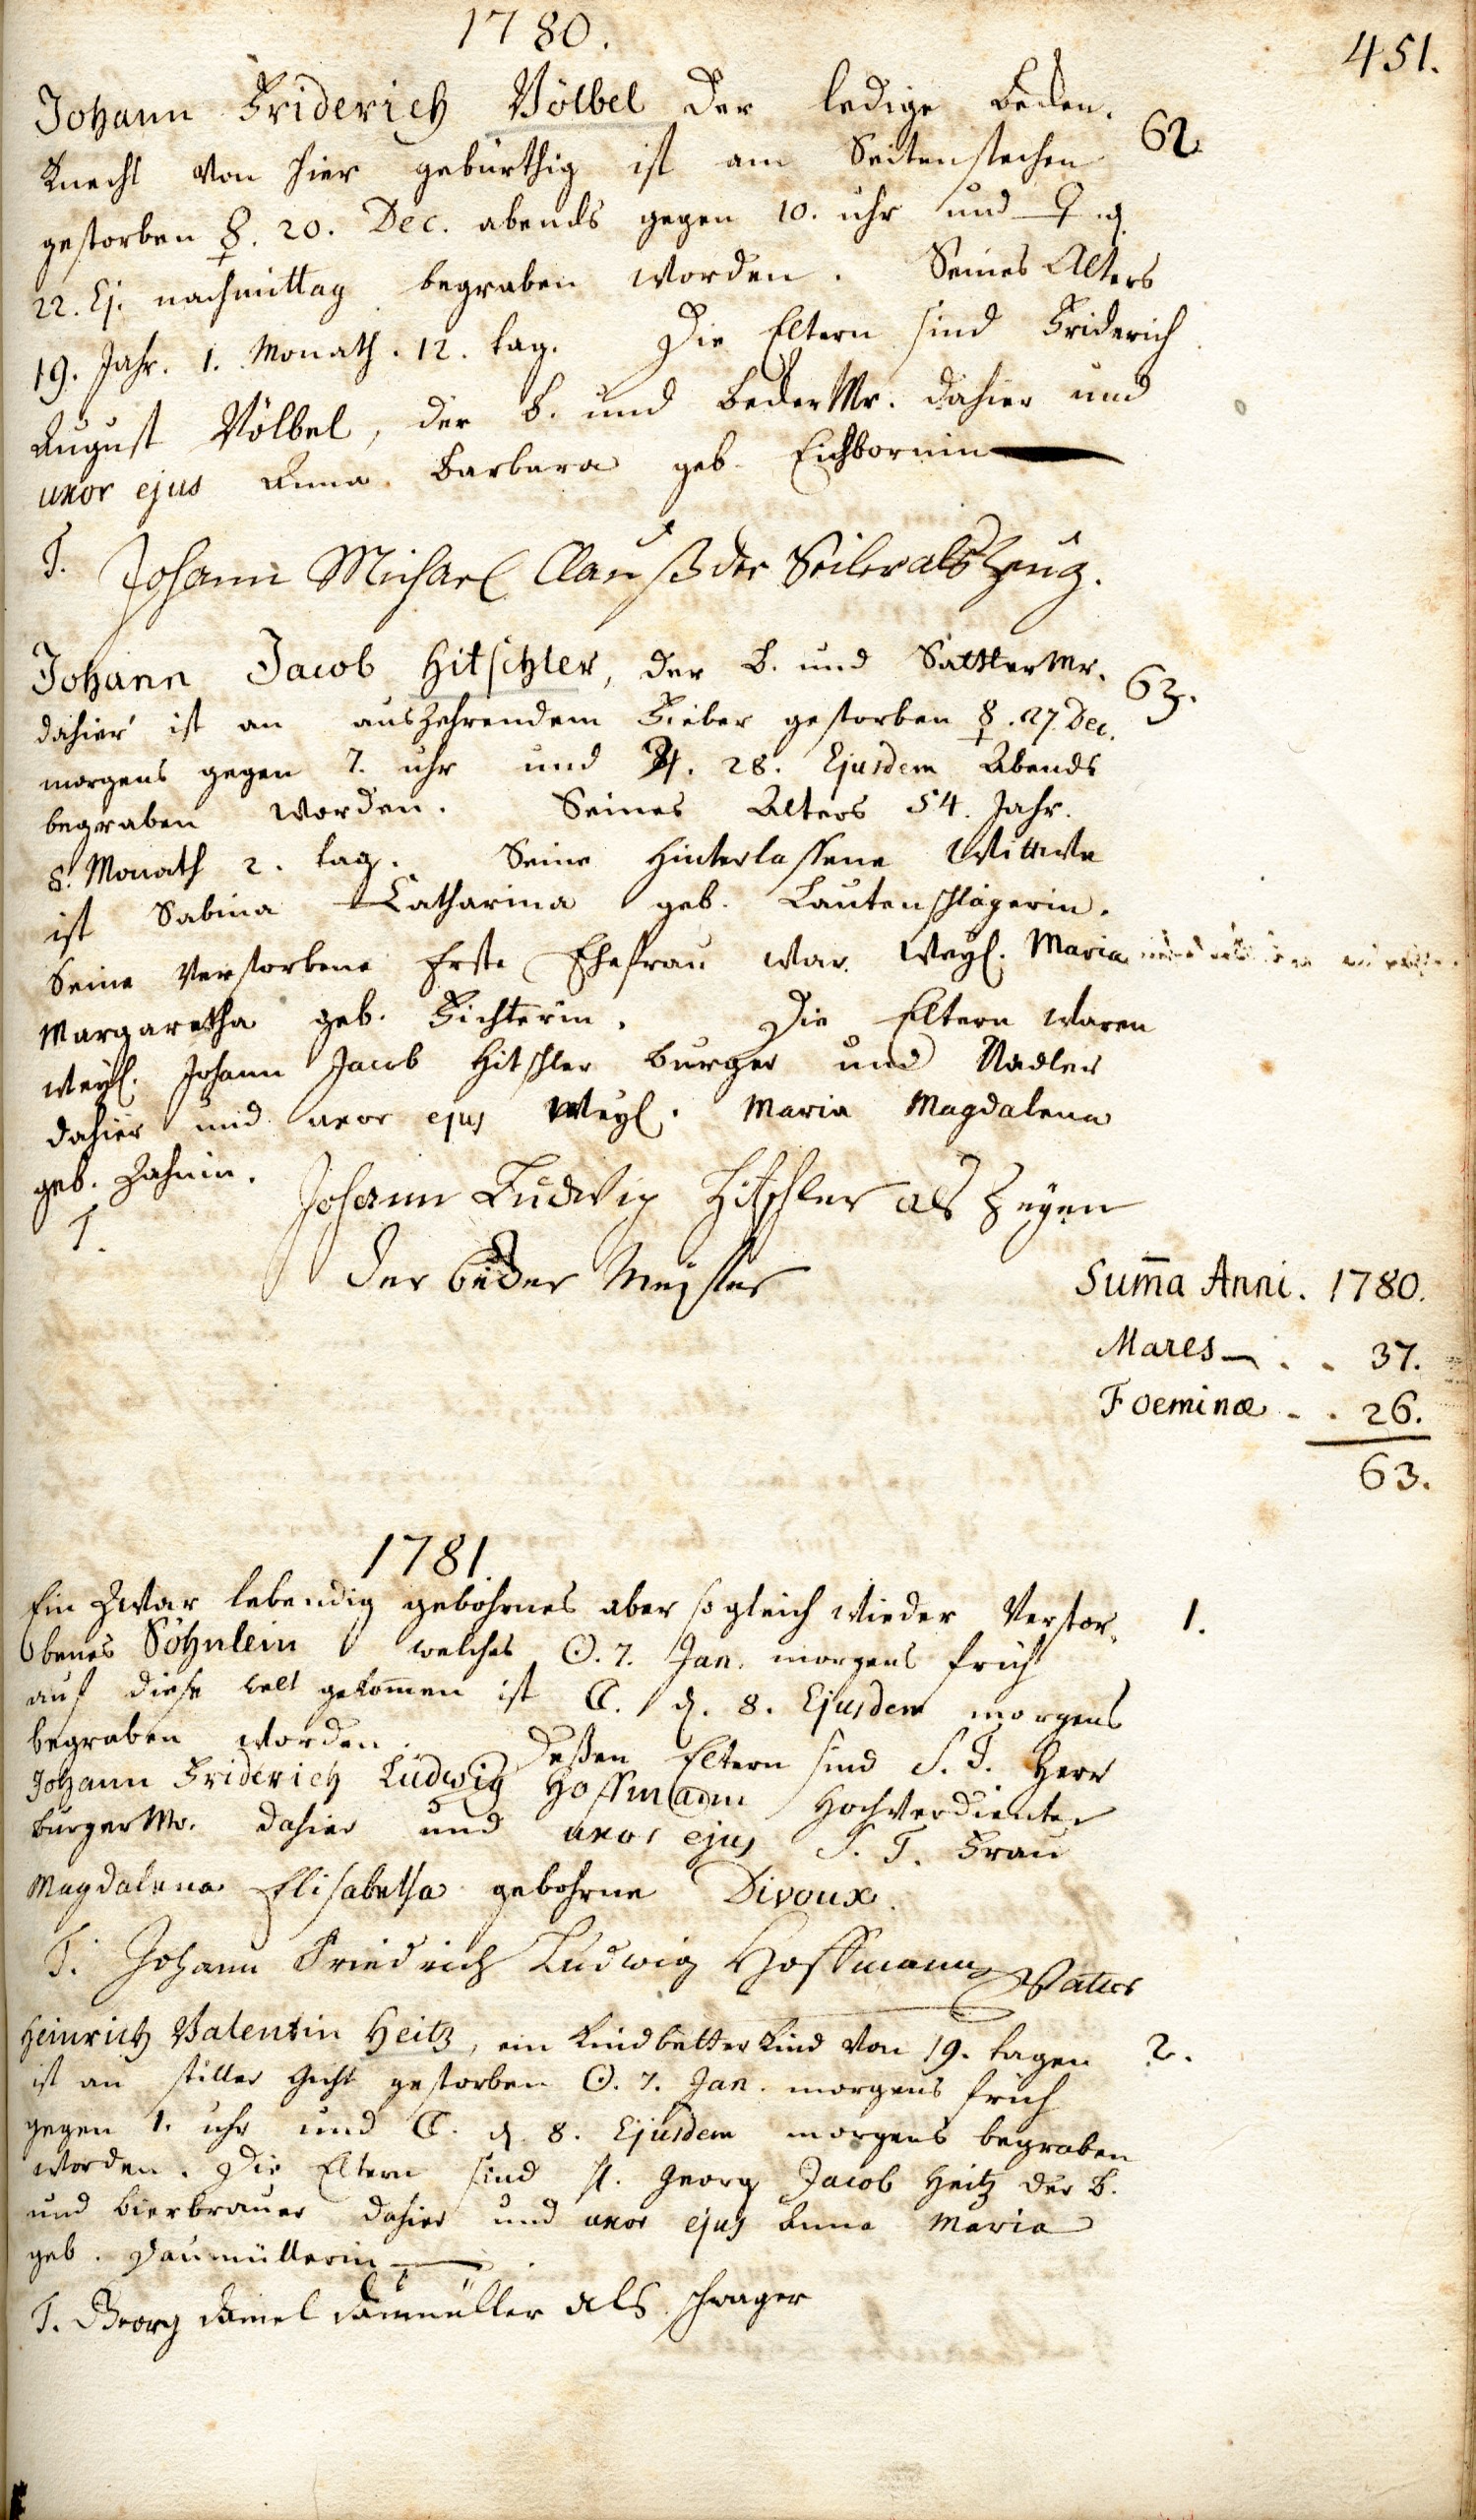 1780.
451.
Johann Friderich Völbel der ledige beden-
62
Knecht von hier gebürthig ist am Seitenstechen
gestorben ☿. 20. Dec. abends gegen 10. uhr und ♀. d.
22. Ej. nachmittag begraben worden. Seines Alters
19. Jahr. 1. Monath. 12. tag. Die Eltern sind Friderich
August Völbel, der b. und beder Mr. dahier und
uxor ejus Anna Barbara geb. Eichbornin
T. Johann Michael Clauß der Seiler als Zeug.
Johann Jacob Hitschler, der b. und Sattler Mr.
63.
dahier ist an auszehrendem Fieber gestorben ☿. 27. Dec.
morgens gegen 7. uhr und ♃. 28. Ejusdem Abends
begraben worden. Seines Alters 54. Jahr.
8. Monath 2. tag. Seine hinterlassene Wittwe
ist Sabina Catharina geb. Lautenschlägerin.
Seine verstorbene Erste Ehefrau war weyl. Maria
Margaretha geb. Fichterin. Die Eltern waren
weyl. Johann Jacob Hitschler burger und Nadler
dahier und uxor ejus weyl. Maria Magdalena
geb. Zahnin.
T. Johann Ludwig Hitschler als Zeugen
der beder Meister
Sum̄a Anni. 1780.
Mares . . 37.
Foeminæ . . 26.
63.
1781.
Ein zwar lebendig gebohrnes aber sogleich wieder verstor-
1.
benes Söhnlein welches ☉. 7. Jan. morgens früh
auf diese welt gekom̄en ist ☾. d. 8. Ejusdem morgens
begraben worden. Deßen Eltern sind S. T. Herr
Johann Friderich Ludwig Hoffmann hochverdienter
burger Mr. dahier und uxor ejus S. T. Frau
Magdalena Elisabetha gebohrne Divoux.
T. Johann Friedrich Ludwig Hoffmann Vatter
Heinrich Valentin Heitz, ein Kindbetter Kind von 19. tagen
2.
ist an stiller Gicht gestorben ☉. 7. Jan. morgens früh
gegen 1. uhr und ☾. d. 8. Ejusdem morgens begraben
worden. Die Eltern sind H. Georg Jacob Heitz der b.
und bierbrauer dahier und uxor ejus Anna Maria
geb. Daumüllerin.
T. Georg Daniel Daumüller als schwager